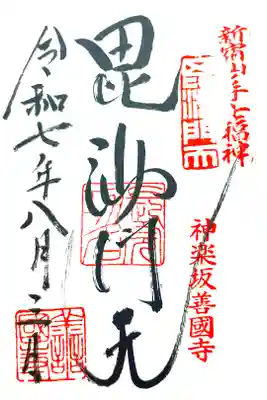 新宿山之手七福神
毘沙門天
神楽坂善國寺
令和七年八月二日